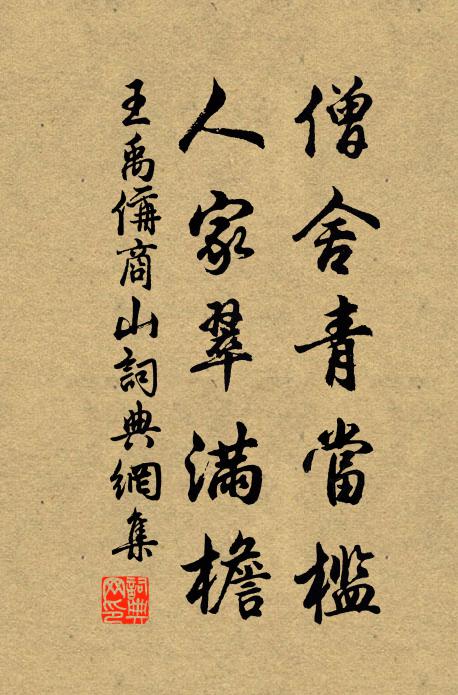 僧舍青當檻
人家翠滿檐
王禹偁商山詞典網集
詞典網印